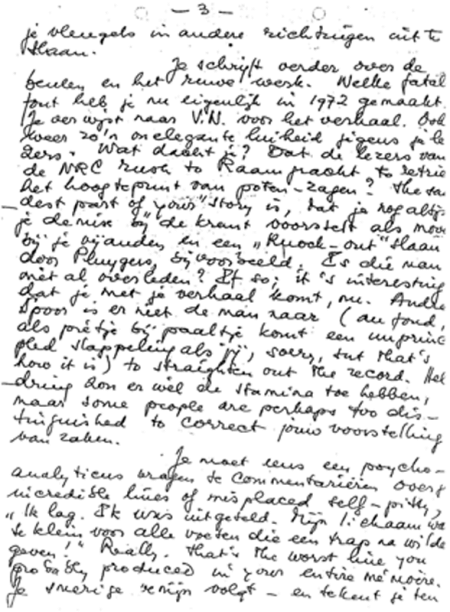 — 3 —
je vleugels in andere richtingen uit te
slaan.
Je schrijft verder over de
beulen en het ruwe werk. Welke fatal
fout heb je nu eigenlijk in 1972 gemaakt.
Je verwijst naar V.N. voor het verhaal. Ook
weer zo'n onelegante luiheid jegens je le
zers. Wat dacht je? Dat de lezers van
de NRC rush to Raamgracht to retrie
het hoogtepunt van poten-zagen? The sa
dest part of your story is, dat je nog altijd
je demise bij de krant voorstelt als
bij je vijanden en een „Knock-out" slaan
door Pluygers, bijvoorbeeld. Is die man
niet al overleden? If so, it is interesting
dat je met je verhaal komt, nu. André
Spoor is er niet de man naar (au fond,
als puntje bij paaltje komt een unprinc
pled slappeling als jij, sorry, but that's
how it is) to straighten out the record. Hel
dring zou er wel de stamina toe hebben,
maar some people are perhaps too dis-
tinguished to correct jouw voorstelling
van zaken.
Je moet eens een psycho-
analyticus vragen te commentariëren over
incredible lines of misplaced self-pity,
„Ik lag. Ik was uitgeteld. Mijn lichaam was
te klein voor alle voeten die een trap na wilde
geven!" Really. that's the worst line you
probably produced in your entire mémoire.
Je snerige venijn volgt – en tekent je ten